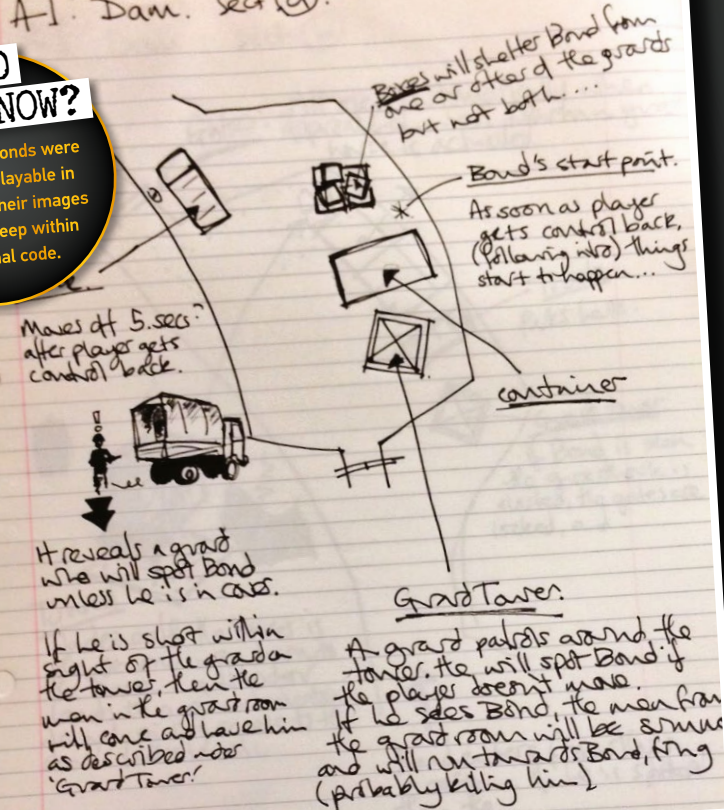 A1. Dam. Sect
O
NOW?
onds were
layable in
heir images
eep within
al code.
Boxes will shelter Bond from
one or other of the guards
but not both....
Bond's start point.
As soon as player
gets control back,
(following intro) things
start to happen...
Moves off 5.secs
after player gets
control back.
container
It reveals a guard
who will spot Bond
unless he is in cover.
If he is shot within
sight of the guard on
the tower, then the
men in the guardroom
will come and have him
as described under
'Guard Tower.'
Guard Tower.
A guard patrols around the
tower. He will spot Bond if
the player doesn't move.
If he sees Bond, the men from
the guardroom will be
and will run towards Bond, firing
(probably killing him)